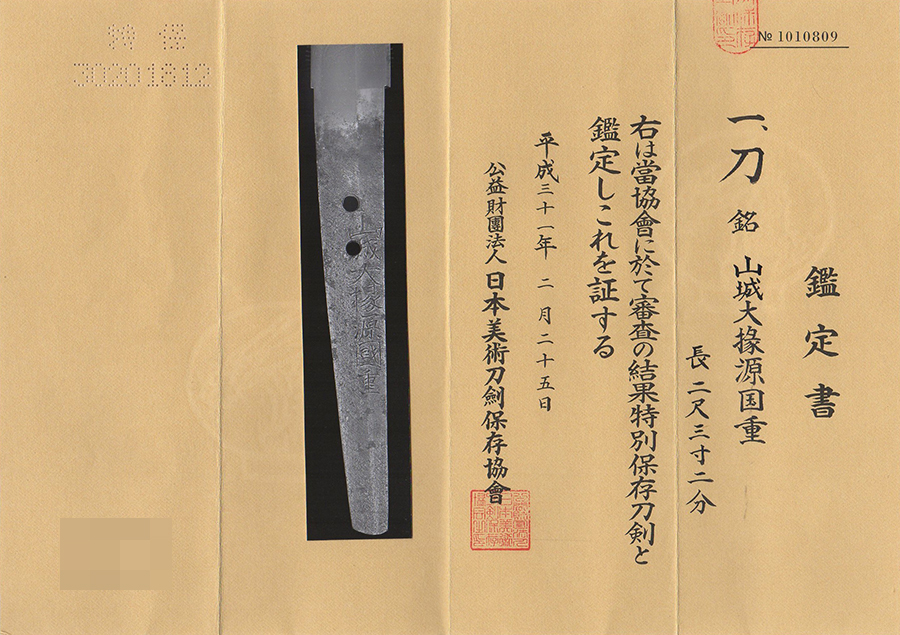 № 1010809
鑑定書
一、刀 銘 山城大掾源国重
長二尺三寸二分
右は當協會に於て審査の結果特別保存刀剣と
鑑定しこれを証する
平成三十一年 二月二十五日
公益財團法人 日本美術刀劍保存協會
山城大掾源國重
特保
30201812